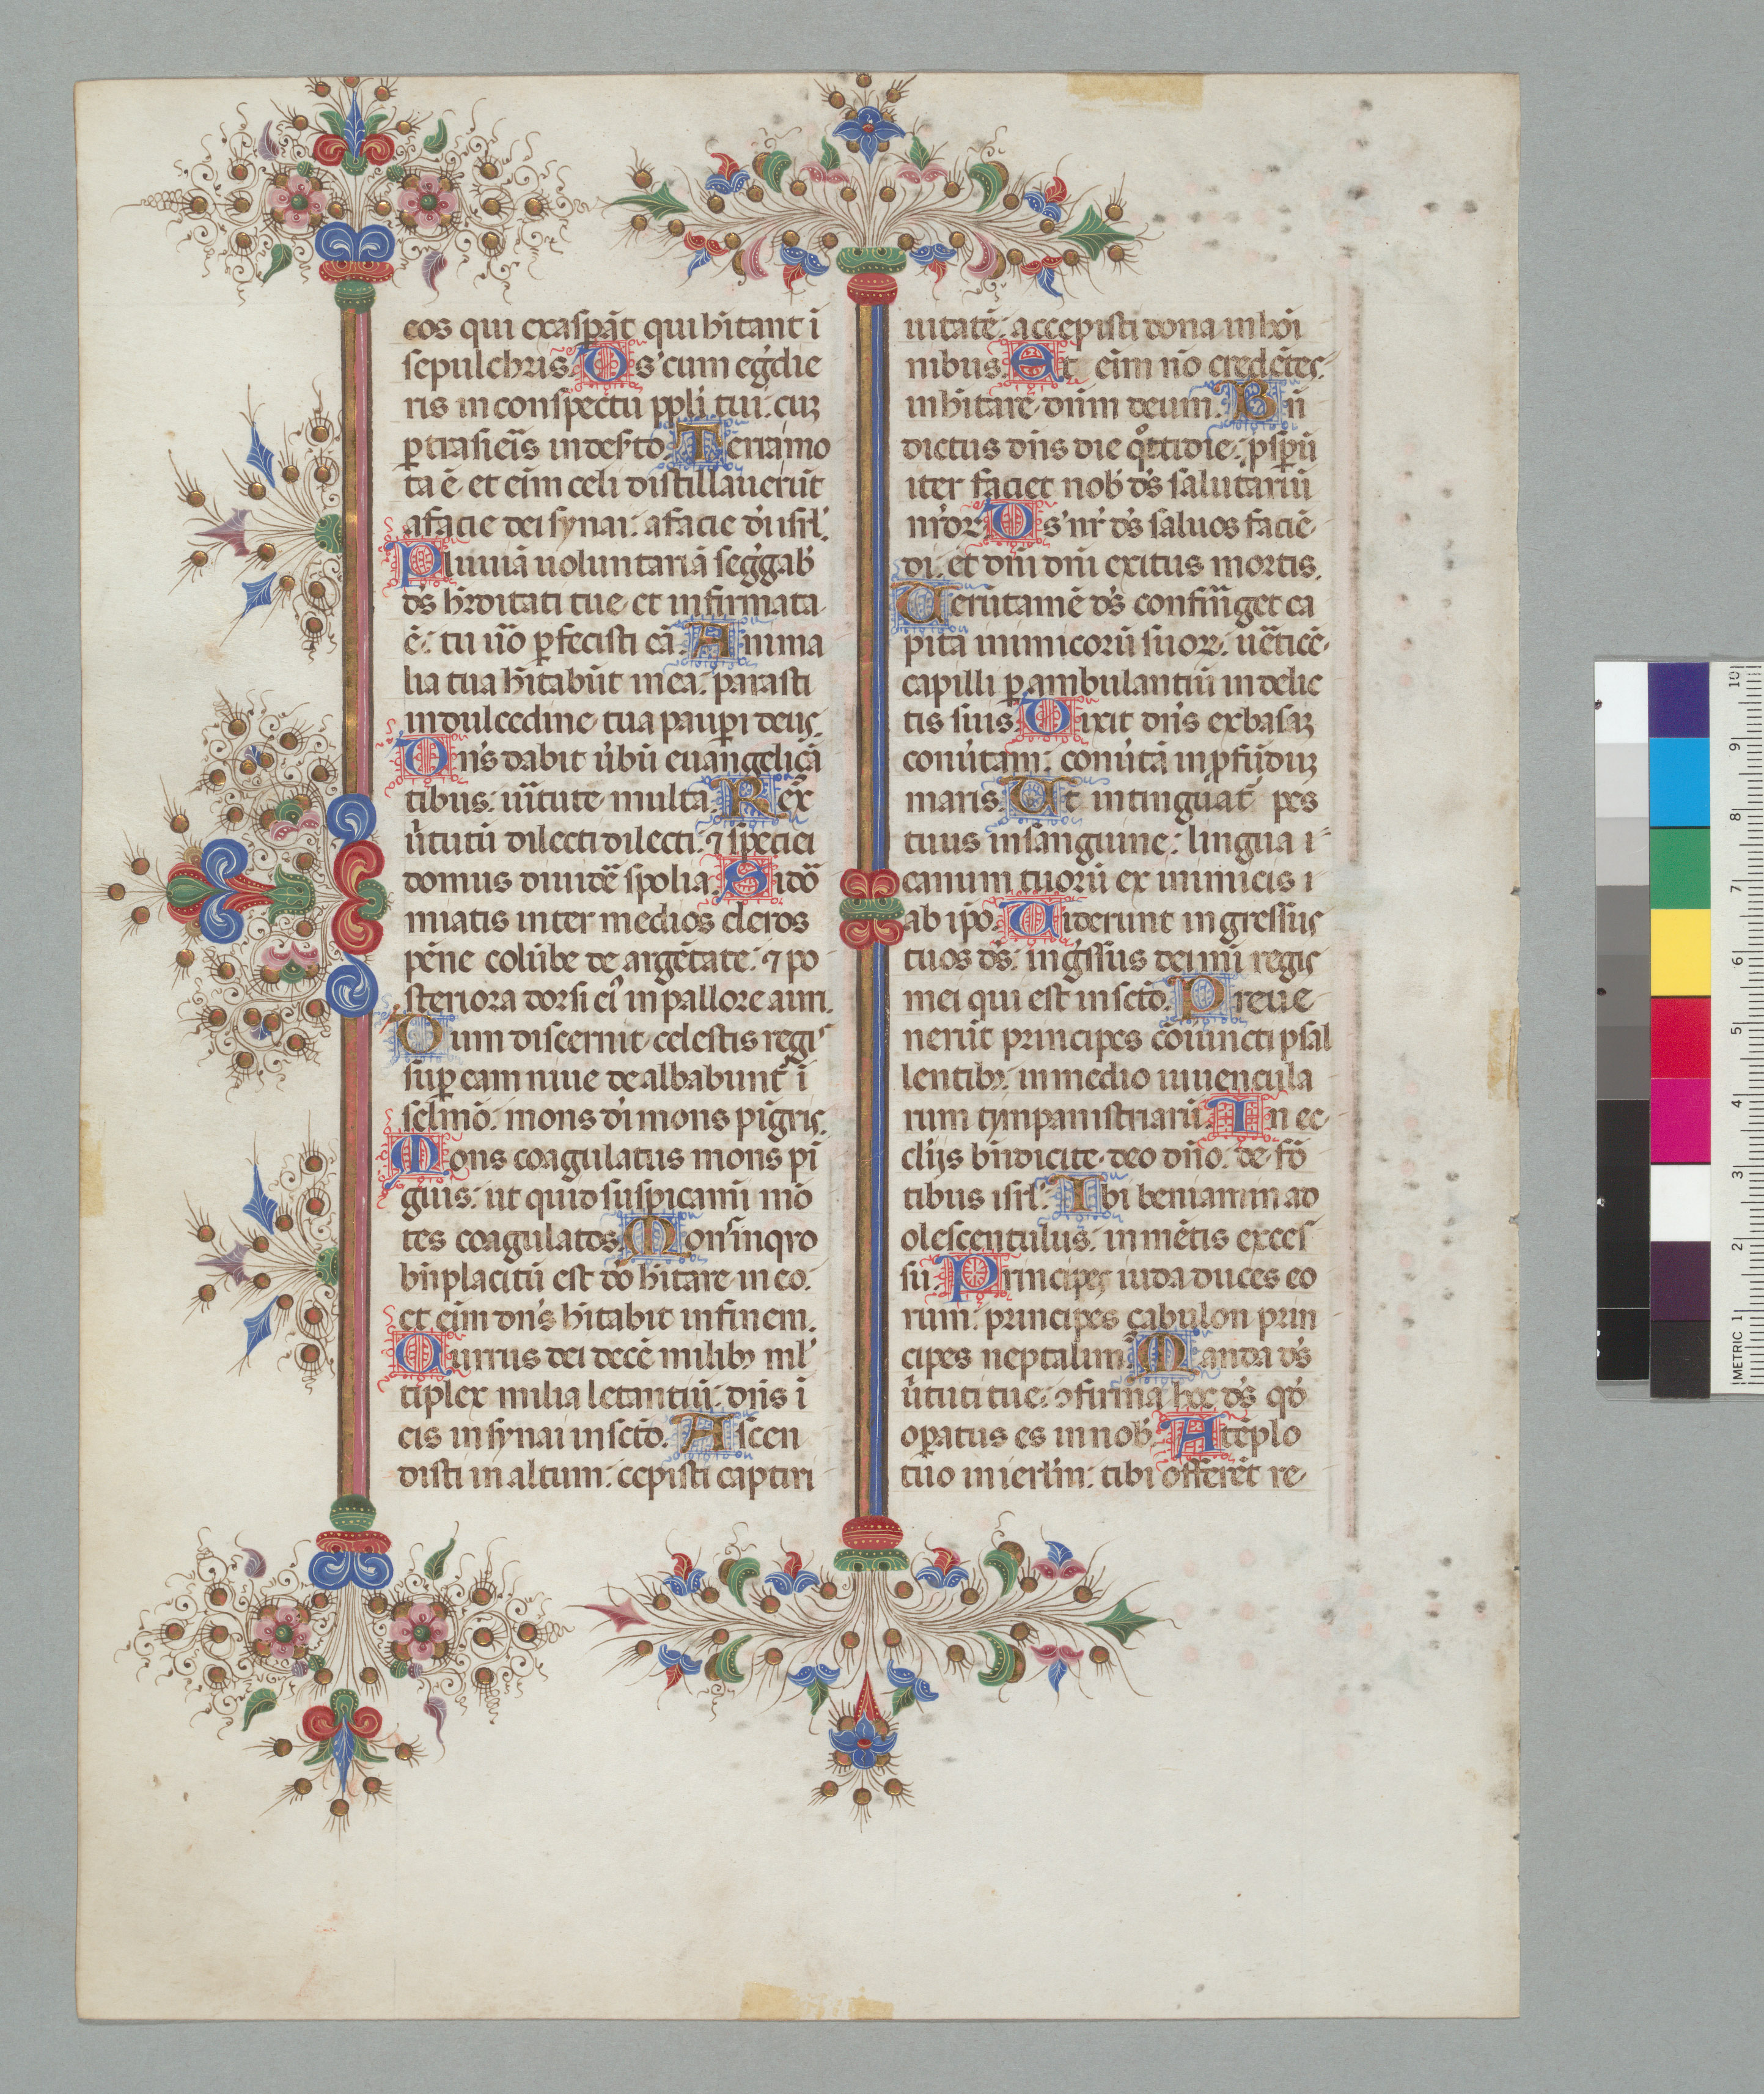 eos qui exasꝑāt qui hītant ī
sepulchris. Ds̄ cum eg̃die
ris in conspectu ppl̄i tui. cuꝫ
ꝑtrāsieris in deserto. Terra mo
ta ē. et eīm celi distillauerūt
a facie dei synai: a facie dī isrl̄.
Pluuiā uoluntariā seg̃gab̄
ds̄ hr̄ditati tue et infirmata
ē: tu uō ꝑfecisti eā. Anima
lia tua hītabūt in ea: parasti
in dulcedine tua pauꝑi deus.
Dn̄s dabit ūbū euangelicā
tibus: uītute multa. Rex
ūtutū dilecti dilecti: ⁊ speciei
domus diuidē spolia. Si dō
miatis inter medios cleros
pēne colūbe de argētate: ⁊ po
steriora dorsi eī in pallore auri.
Dum discernit celestis regis
suꝑ eam niue dealbabunt̄ ī
selmō: mons dī mons pīgis.
Mons coagulatus mons pī
guis: ut quid suspicamī mō
tes coagulatos. Mons in qro
bn̄placitū est dō hītare in eo:
et eīm dn̄s hītabit in finem.
Currus dei decē milibꝫ ml̄
tiplex milia letantiū: dn̄s ī
eis in synai in sc̄to. Ascen
disti in altum: cepisti captiu
uitatē: accepisti dona in hoī
nibus. Et eīm nō credētes
inhītare dn̄m deum. Bn̄
dictus dn̄s die q̊ttidie: ꝓsꝑū
iter faciet nob̄ ds̄ salutariū
nr̄oꝝ. Ds̄ nr̄ ds̄ saluos faciē
di: et dn̄i dn̄i exitus mortis.
Uerūtamē ds̄ confrīget ca
pita inimicorū suoꝝ: uēticē
capilli ꝑambulantiū in delic
tis suis. Dixit dn̄s ex basaꝫ
conūtam: conūtā in ꝓfūduꝫ
maris. Ut intinguat̄ pes
tuus in sanguine: lingua
canum tuorū ex inimicis
ab ip̄o. Uiderunt ingressus
tuos ds̄: ingr̄ssus dei mī regis
mei qui est in sc̄to. Preue
nerūt principes cōiuncti psal
lentibꝫ: in medio iuuencula
rum tympanistriarū. In ec
cl̄ijs bn̄dicite deo dn̄o: de fō
tibus isrl̄. Ibi beniamin ad
olescentulus: in mētis exces
su. Principes iuda duces eo
rum: principes zabulon prin
cipes neptalim. Manda ds̄
ūtuti tue: ꝯfirma hoc ds̄ qd̄
oꝑatus es in nob̄. A tēplo
tuo in ierl̄m: tibi offerēt re